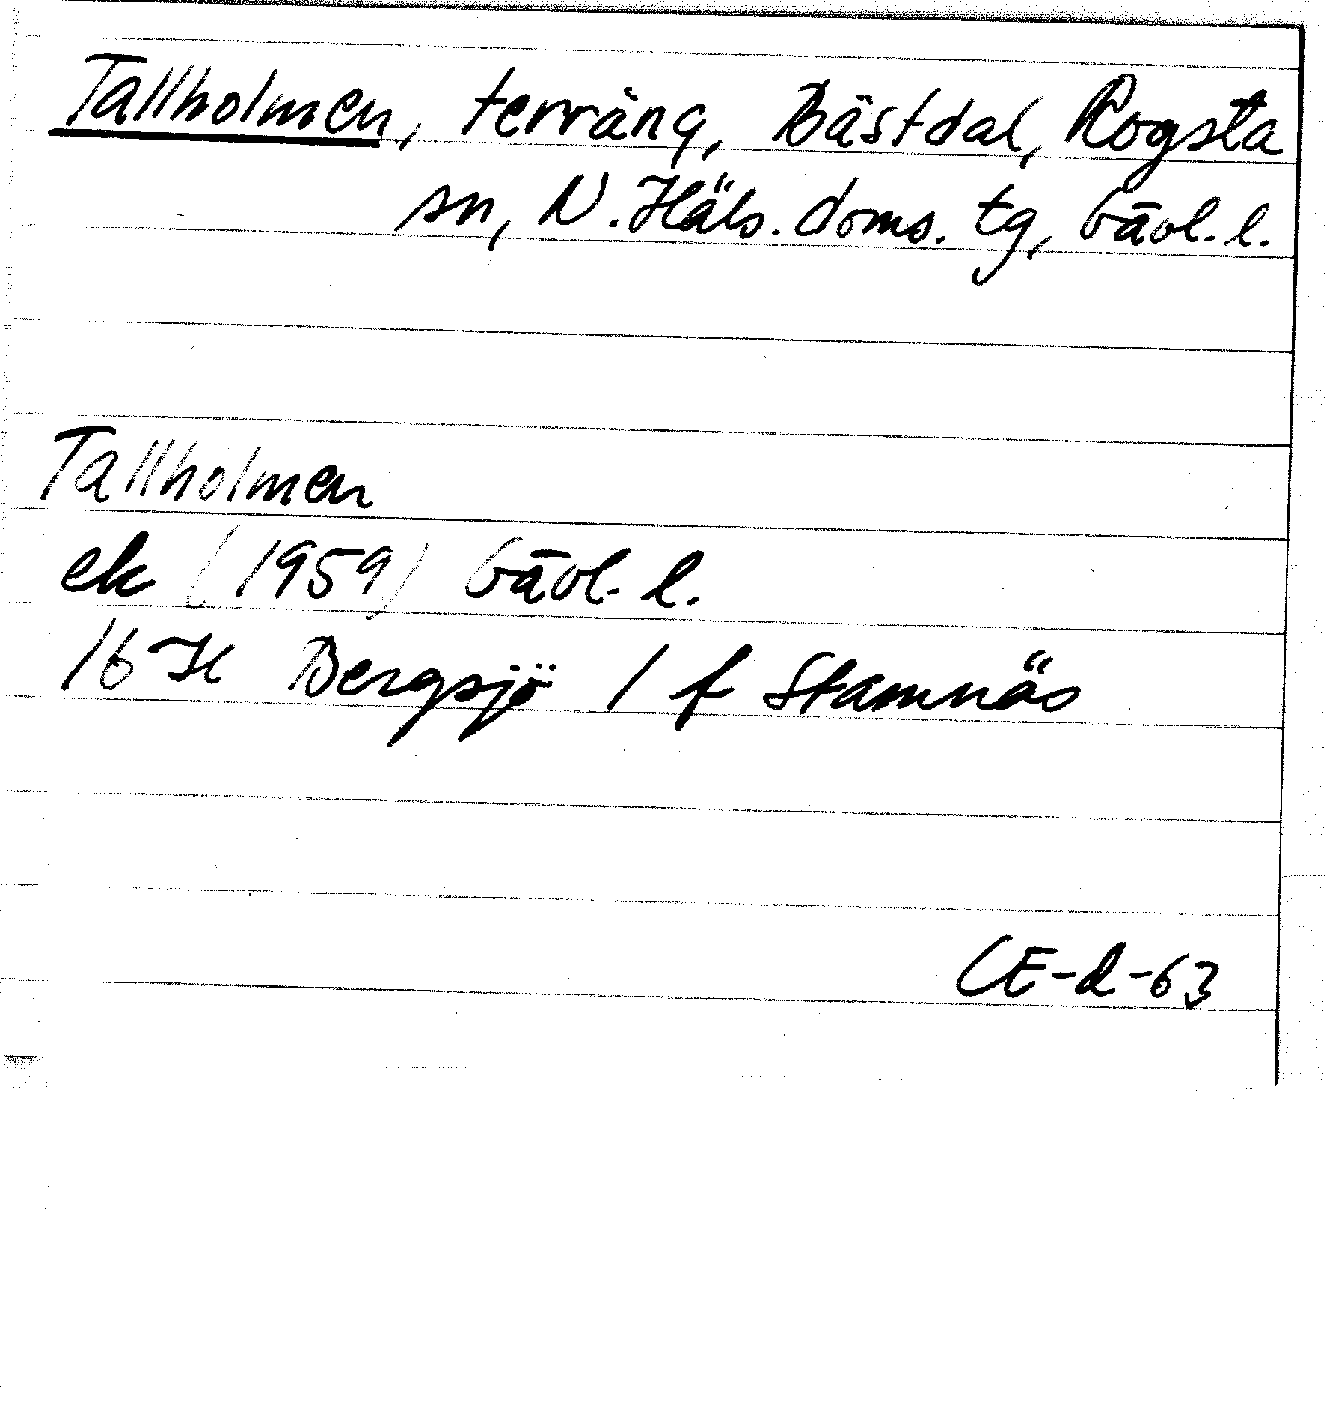 Tallholmen, terräng, Bästdal, Rogsta
sn, N. Häls. doms. tg, Gävl. l.
Tallholmen
ek (1959) Gävl. l.
16 H Bergsjö 1 f Stamnäs
CE-d-63